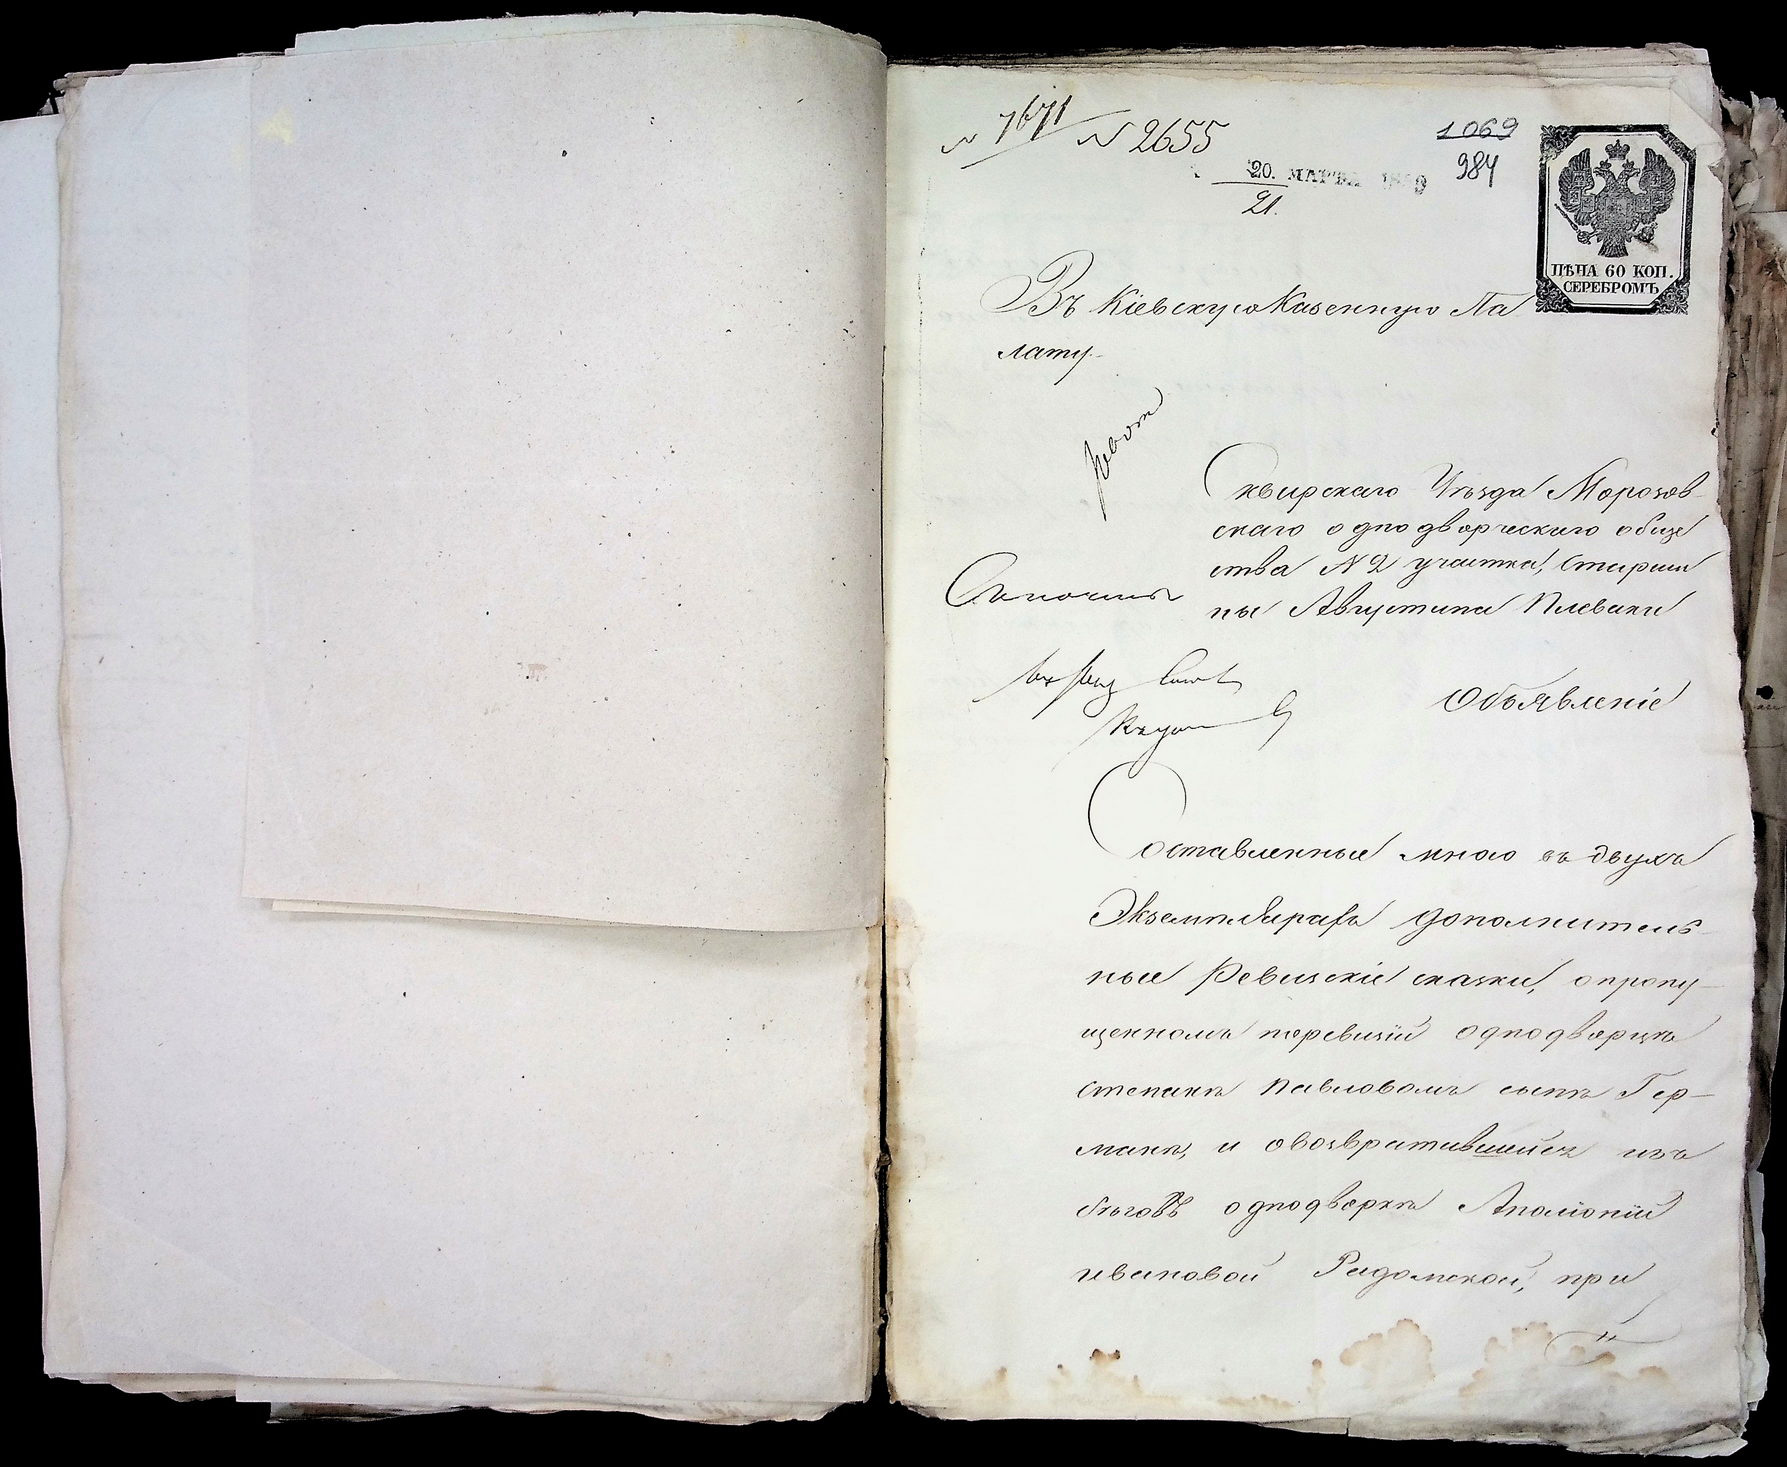 N 7671 N 2655
1069
984
20. МАРТА
21.
ЦѢНА 60 КОП.
СЕРЕБРОМЪ
Въ Кіевскую Казенную Па
лату
Сквирскаго Уѣзда Морозов-
скаго однодворческаго обще
ства N 2 участка, Старши
ны Августина Плеваки
Объявленіе
Составленные мною въ двухъ
Экземплярахъ дополнитель-
ные Ревизскіе сказки, о пропу-
щенномъ поревизіи однодворцѣ
Степанѣ Павловомъ сынѣ Гер-
манѣ, и овозвратившейся изъ
бѣговъ однодворкѣ Аполіоніи
Ивановой Радомской, при